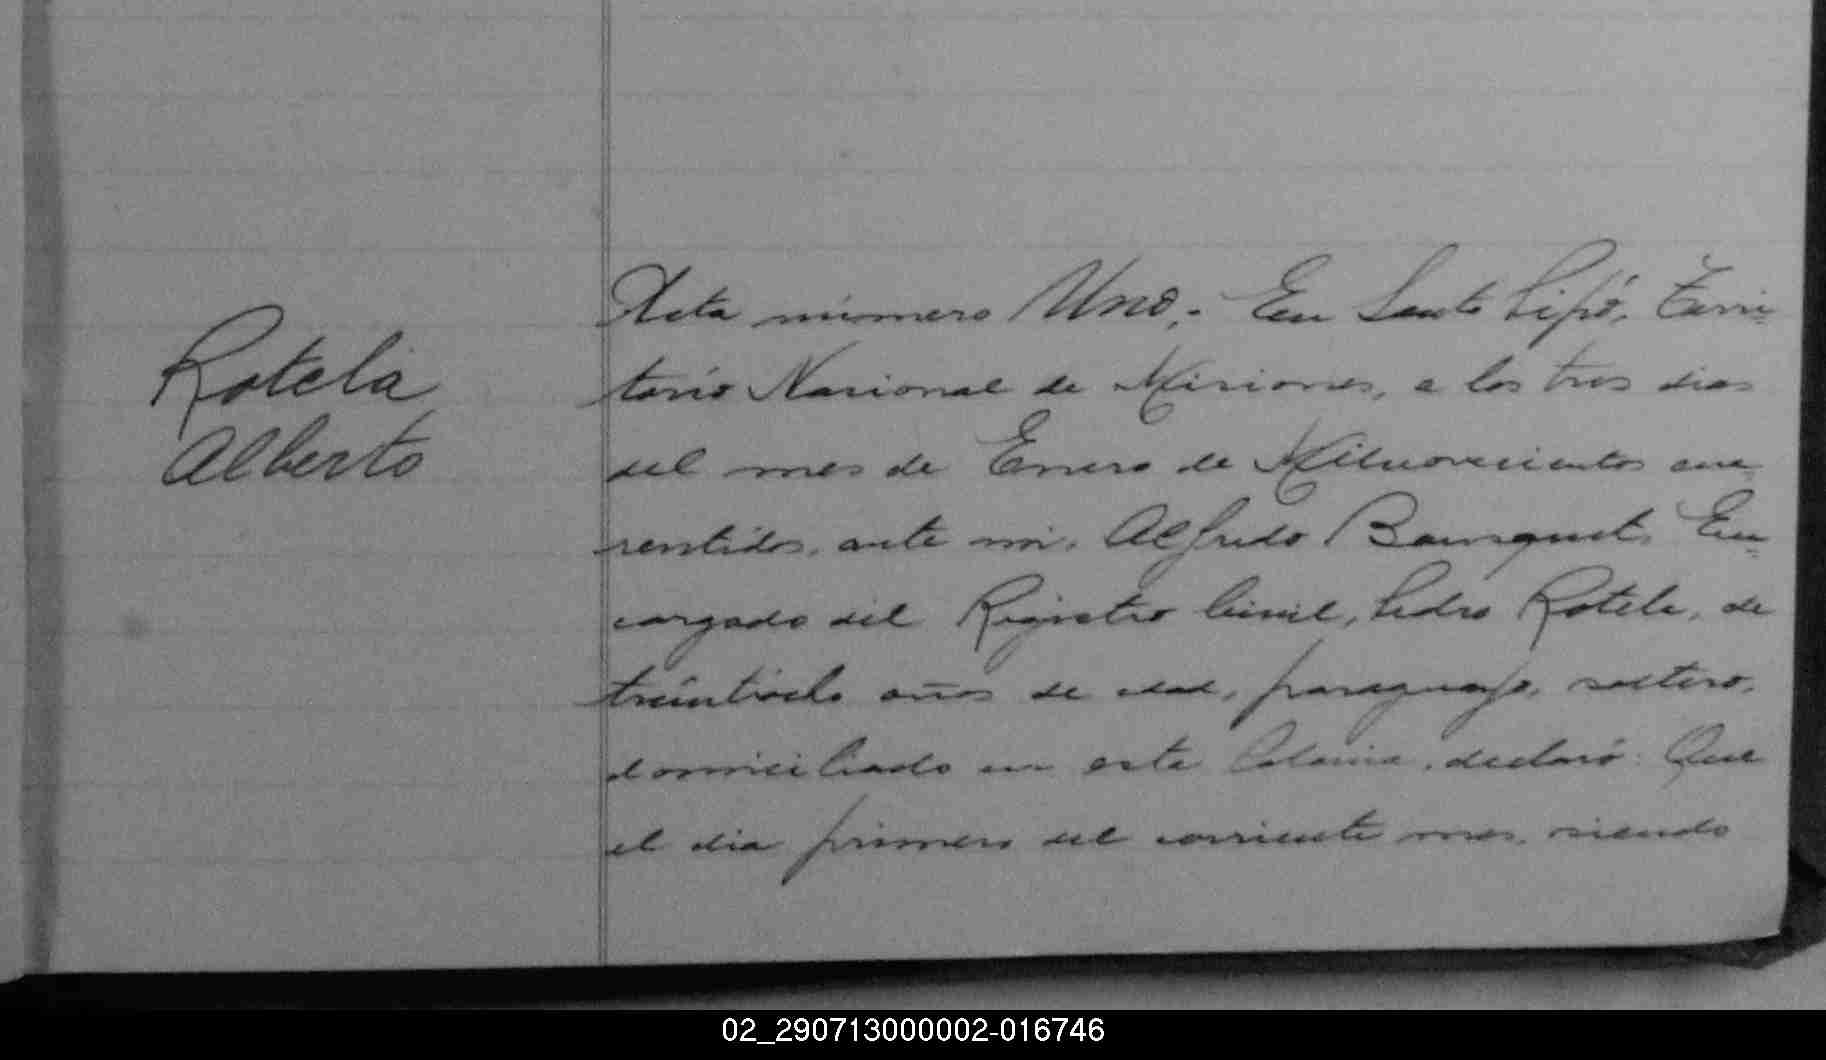 Rotela
Alberto
Acta número Uno.- En Santo Pipó, Terri=
torio Nacional de Misiones, a los tres dias
del mes de Enero de Milnovecientos cua
rentidos, ante mi, Alfredo En=
cargado del Registro Civil, Pedro Rotela, de
treintiocho años de edad, paraguayo, soltero,
domiciliado en esta Colonia, declaró: Que
el dia primero del corriente mes, siendo
02_290713000002-016746